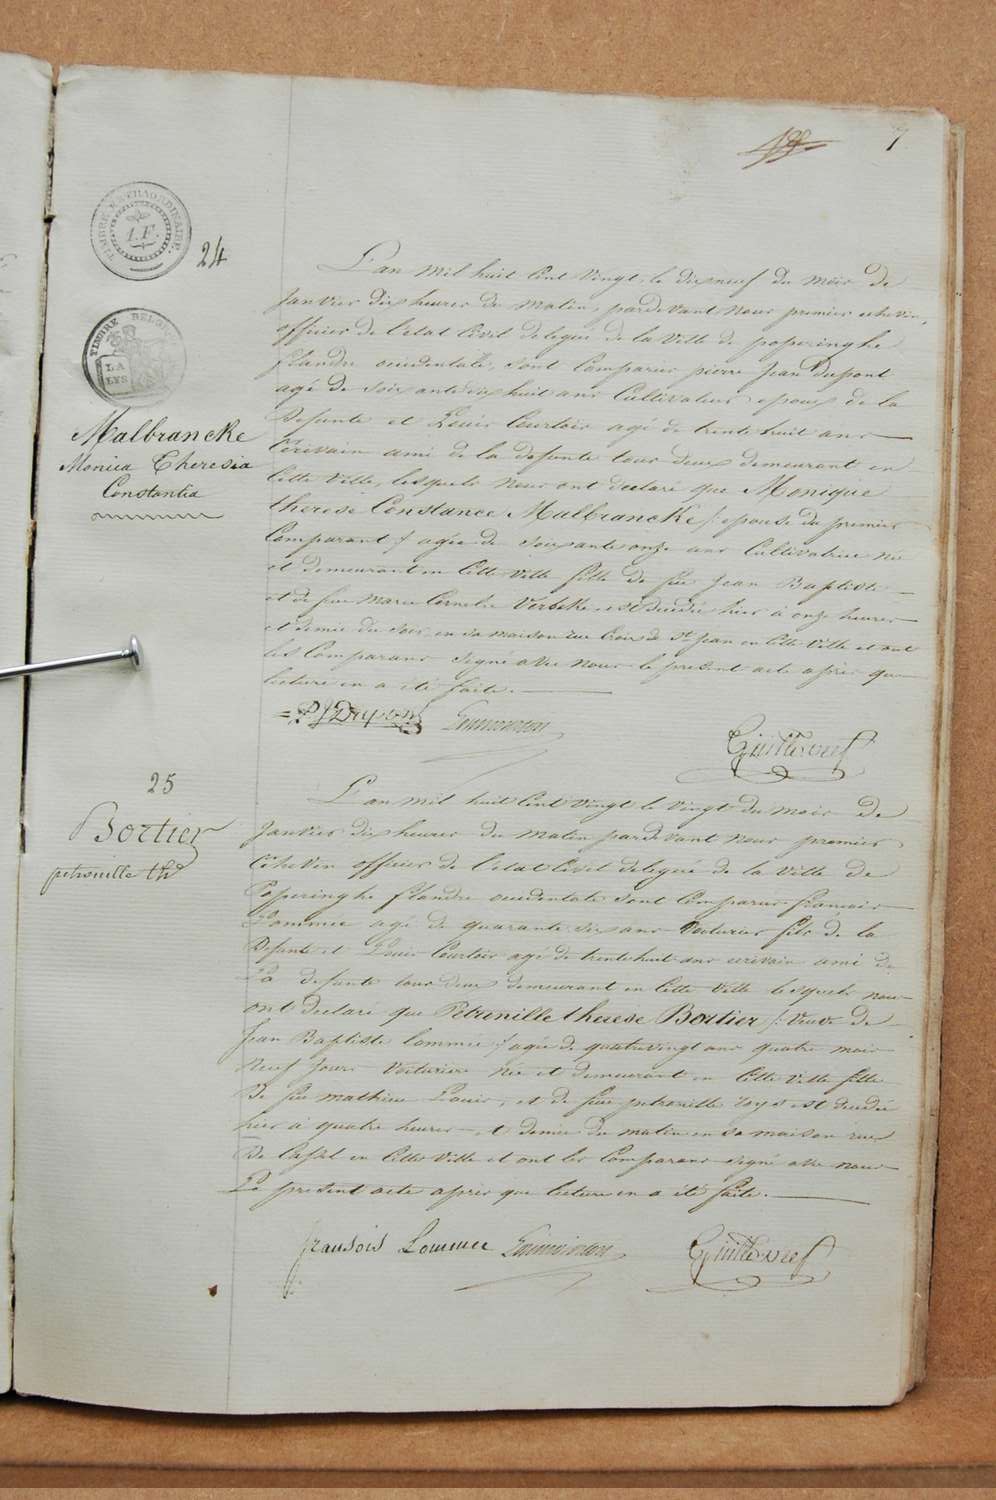 7
TIMBRE EXTRAORDINAIRE
24
TIMBRE BELGIQUE
LA
LYS
Malbrancke
Monica Theresia
Constantia
L'an mil huit cent vingt, le dix neuf du mois de
Janvier dix heures du matin, pardevant nous premier echevin,
officier de l'etat civil delegué de la ville de poperinghe
flandre occidentale, sont comparus pierre Jean Dupont
agé de soixante dix huit ans cultivateur epoux de la
Defunte et Louis Courtois agé de trente huit ans
Ecrivain ami de la defunte tous deux demeurant en
cette ville, lesquels nous ont declaré que Monique
therese Constance Malbrancke /: epouse du premier
Comparant :/ agée de soixante onze ans cultivatrice née
et demeurant en cette ville fille de feu Jean Baptiste
et de feue Marie Cornelie Verbeke, est decedée hier à onze heures
et demie du soir, en sa maison rue Croix de St Jean en cette ville et ont
les Comparans signé avec nous le present acte après que
lecture en a été faite.
P J Dupont
25
Bortier
petronille thse
L'an mil huit cent vingt le vingt du mois de
Janvier dix heures du matin pardevant nous premier
Echevin officier de l'etat civil delegué de la ville de
Poperinghe flandre occidentale sont comparus françois
Lommée agé de quarante six ans voiturier fils de la
Defunte et Louis Courtois agé de trente huit ans ecrivain ami de
La defunte tous deux demeurant en cette ville lesquels nous
ont declaré que Petronille therese Bortier /: veuve de
Jean Baptiste Lommée :/ agée de quatrevingt ans quatre mois
Neuf Jours voiturier née et demeurant en cette ville fille
De feu mathieu Louis, et de feue petronille est decedée
hier à quatre heures et demie du matin en sa maison rue
De Cassel en cette ville et ont les Comparans signé avec nous
Le present acte après que lecture en a été faite.
fransois Lommee